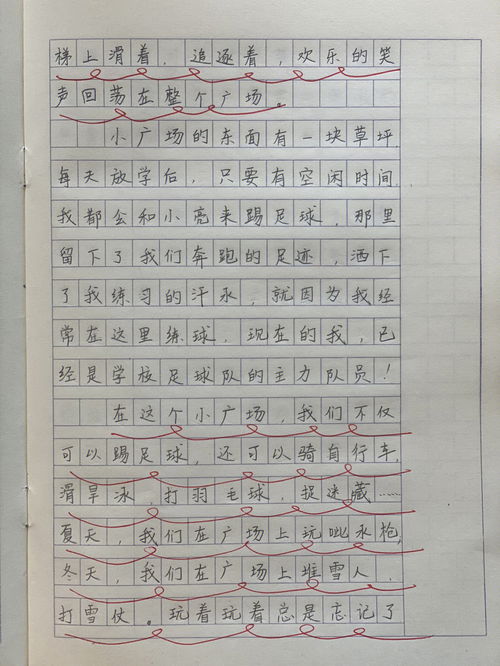 梯上滑着，追逐着，欢乐的笑
声回荡在整个广场。
小广场的东面有一块草坪，
每天放学后，只要有空闲时间，
我都会和小亮来踢足球，那里
留下了我们奔跑的足迹，洒下
了我练习的汗水，就因为我经
常在这里练球，现在的我，已
经是学校足球队的主力队员！
在这个小广场，我们不仅
可以踢足球，还可以骑自行车，
滑旱冰，打羽毛球，捉迷藏……
夏天，我们在广场上玩呲水枪，
冬天，我们在广场上堆雪人，
打雪仗。玩着玩着总是忘记了